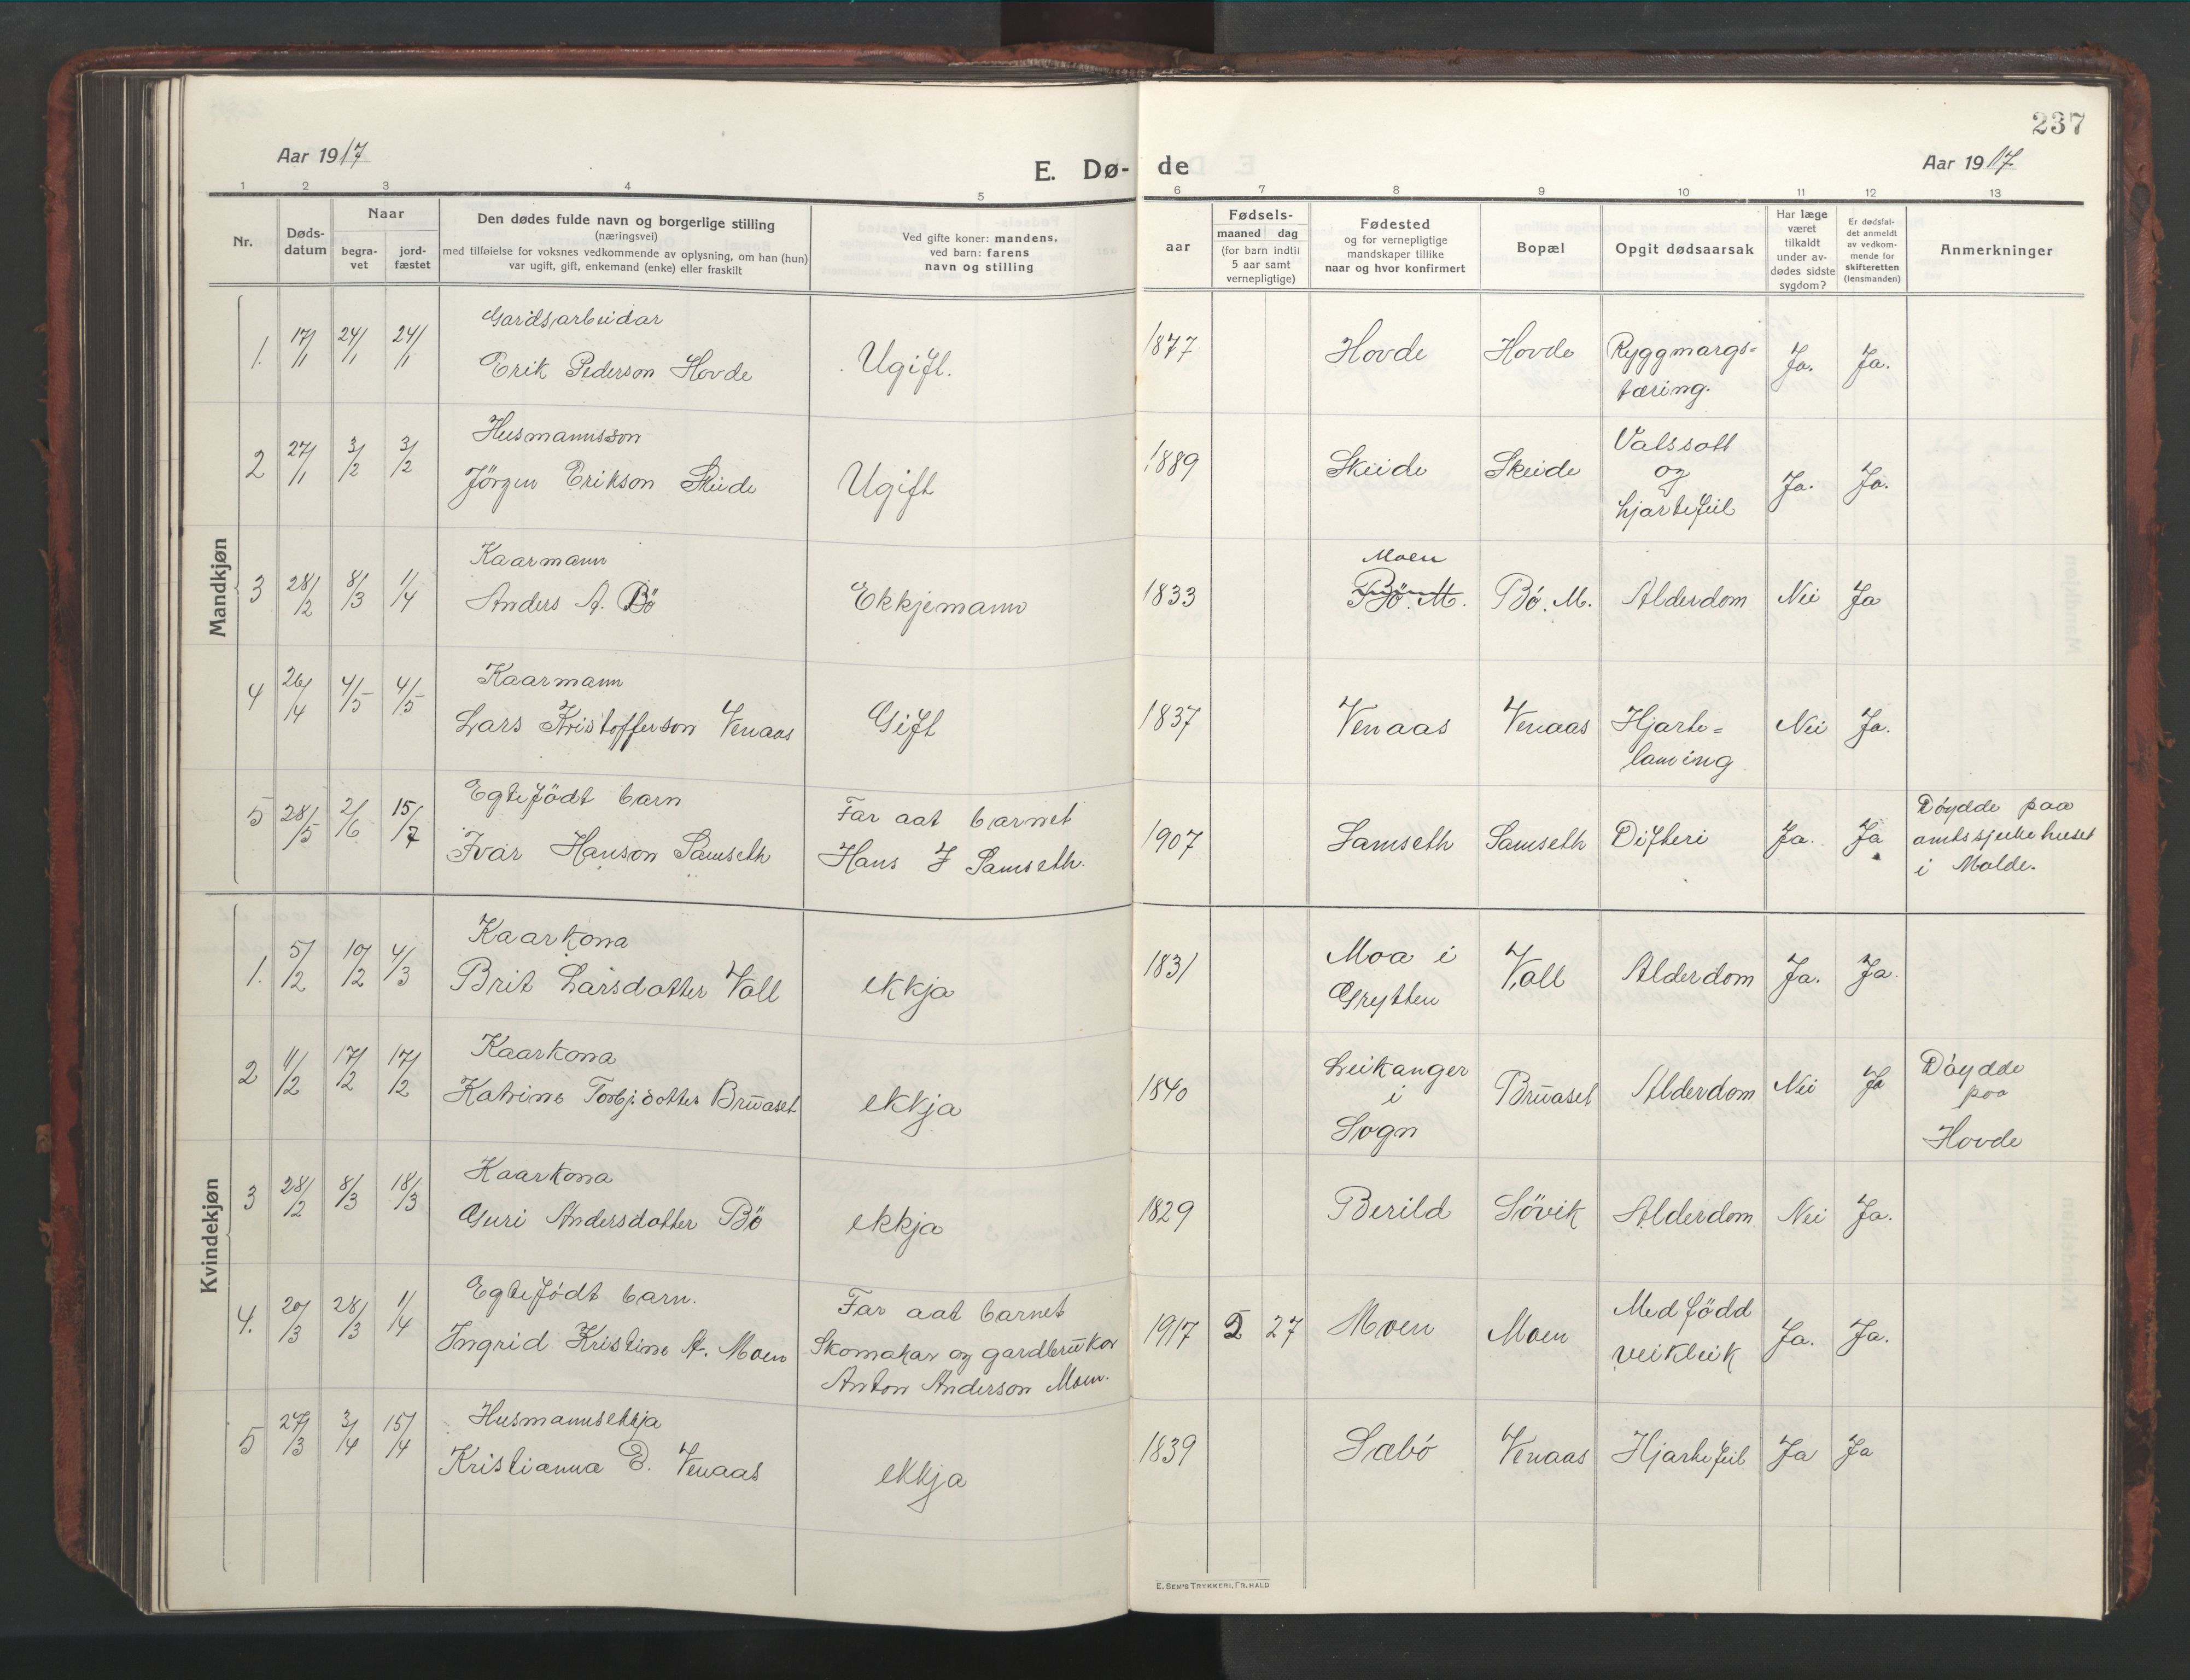 237
Aar 1917
E. Dø-
de
Aar 1917
1 2 3 4 5 6 7 8 9 10 11 12 13
Nr.
Døds-
datum
Naar
begra-
vet
jord-
fæstet
Den dødes fulde navn og borgerlige stilling
(næringsvei)
med tilføielse for voksnes vedkommende av oplysning, om han (hun)
var ugift, gift, enkemand (enke) eller fraskilt
Ved gifte koner: mandens,
ved barn: farens
navn og stilling
aar
Fødsels-
maaned dag
(for barn indtil
5 aar samt
vernepligtige)
Fødested
og for vernepligtige
mandskaper tillike
naar og hvor konfirmert
Bopæl
Opgit dødsaarsak
Har læge
været
tilkaldt
under av-
dødes sidste
sygdom?
Er dødsfal-
det anmeldt
av vedkom-
mende for
skifteretten
(lensmanden)
Anmerkninger
Mandkjøn
Gardsarbeidar
1. 17/1 24/1 24/1 Erik Pederson Hovde Ugift. 1877 Hovde Hovde Ryggmargs=
tæring. Ja. Ja.
Husmannsson
2 27/1 3/2 3/2 Jörgen Erikson Skeide Ugift 1889 Skeide Skeide Valssott
og
hjartefeil Ja. Ja.
Kaarmann
3 28/2 8/3 1/4 Anders A. Bö Ekkjemann 1833 Moen
Bö. M. Bö. M. Alderdom Nei Ja
Kaarmann
4 26/4 4/5 4/5 Lars Kristofferson Venaas Gift 1837 Venaas Venaas Hjarte=
laming Nei Ja.
Egtefödt barn
5 28/5 2/6 15/7 Ivar Hanson Samseth
Far aat barnet
Hans I Samseth. 1907 Samseth Samseth Difteri Ja. Ja
Döydde paa
amtssjukehuset
i Molde.
Kvindekjøn
Kaarkona
1. 5/2 10/2 4/3 Brit Larsdotter Voll ekkja 1831 Moa i
Grytten Voll Alderdom Ja. Ja.
Kaarkona
2 11/2 17/2 17/2 Katrine Torbjdotter Brŭaset ekkja 1840 Leikanger
i
Sogn Brŭaset Alderdom Nei Ja
Döydde
paa
Hovde
Kaarkona
3 28/2 8/3 18/3 Guri Andersdotter Bö ekkja 1829 Berild Sövik Alderdom Nei Ja.
Egtefödt barn.
4. 20/3 28/3 1/4 Ingrid Kristine A. Moen
Far aat barnet
Skomakar og gardbrŭkar
Anton Anderson Moen. 1917 2 27 Moen Moen Medfödd
veikleik Ja. Ja.
Husmannsekkja
5 27/3 3/4 15/4 Kristianna E. Venaas ekkja 1839 Sæbö Venaas Hjartefeil Ja Ja
E. SEM'S TRYKKERI, FR.HALD